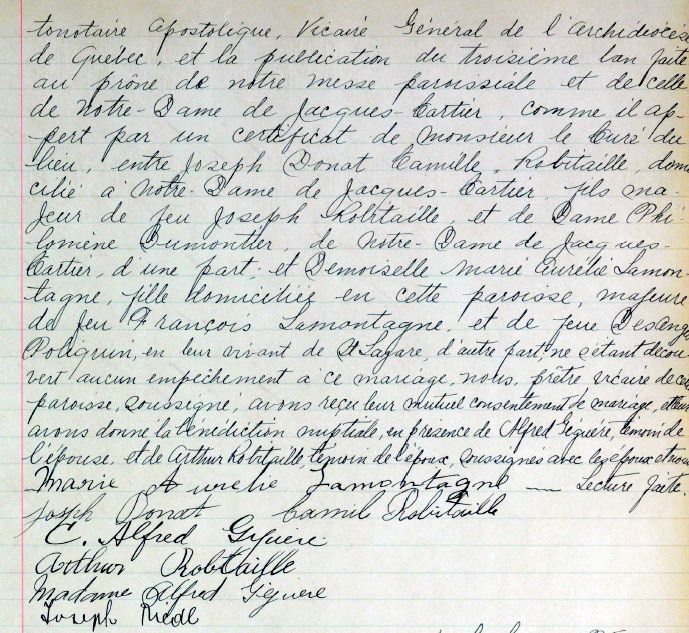 tonotaire apostolique, Vicaire Général de l'archidiocèse
de Québec, et la publication du troisième ban faite
au prône de notre messe paroissiale et de celle
de Notre-Dame de Jacques-Cartier, comme il ap-
pert par un certificat de monsieur le Curé du
lieu, entre Joseph Donat Camille Robitaille, domi
cilié à Notre-Dame de Jacques-Cartier, fils ma-
jeur de feu Joseph Robitaille, et de Dame Phi-
lomène Dumontier, de Notre-Dame de Jacques-
Cartier, d'une part; et Demoiselle Marie Aurélie Lamon-
tagne, fille domiciliée en cette paroisse, majeure
de feu François Lamontagne, et de feue Desanges
Poliquin, en leur vivant de St Lazare, d'autre part; ne s'étant décou
vert aucun empêchement à ce mariage, nous, prêtre vicaire de cette
paroisse, soussigné, avons reçu leur mutuel consentement de mariage, et leur
avons donné la bénédiction nuptiale, en présence de Alfred Géguère, témoin de
l'épouse, et de Arthur Robitaille, témoin de l'époux, soussignés avec les époux et nous
Marie Aurelie Lamontagne — Lecture faite.
Joseph Donat Camil Robitaille
C. Alfred Gyuere
Arthur Robitaille
Madame Alfred Géguere
Joseph Riedl